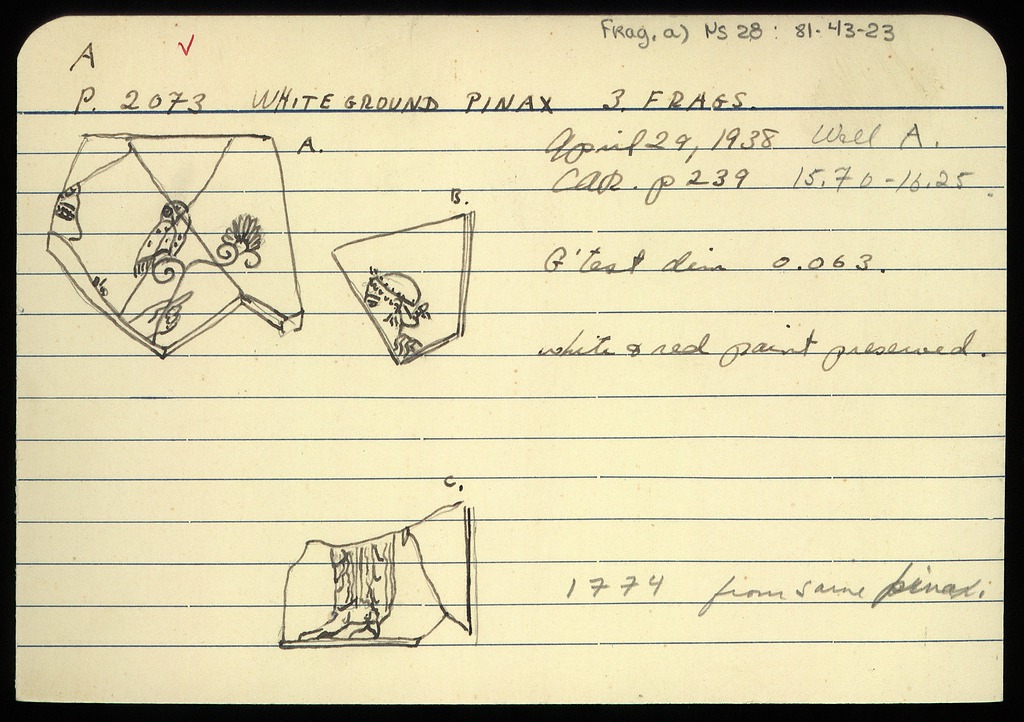 Frag. a) NS 28 : 81-43-23
A ✓
P. 2073 WHITE GROUND PINAX 3 FRAGS.
A.
April 29, 1938 Well A.
Car. p 239 15.70-16.25
B.
G'test dim 0.063.
white & red paint preserved.
C.
1774 from same pinax.